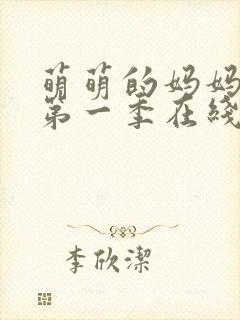 萌萌的妈妈
第一季在线
李欣潔